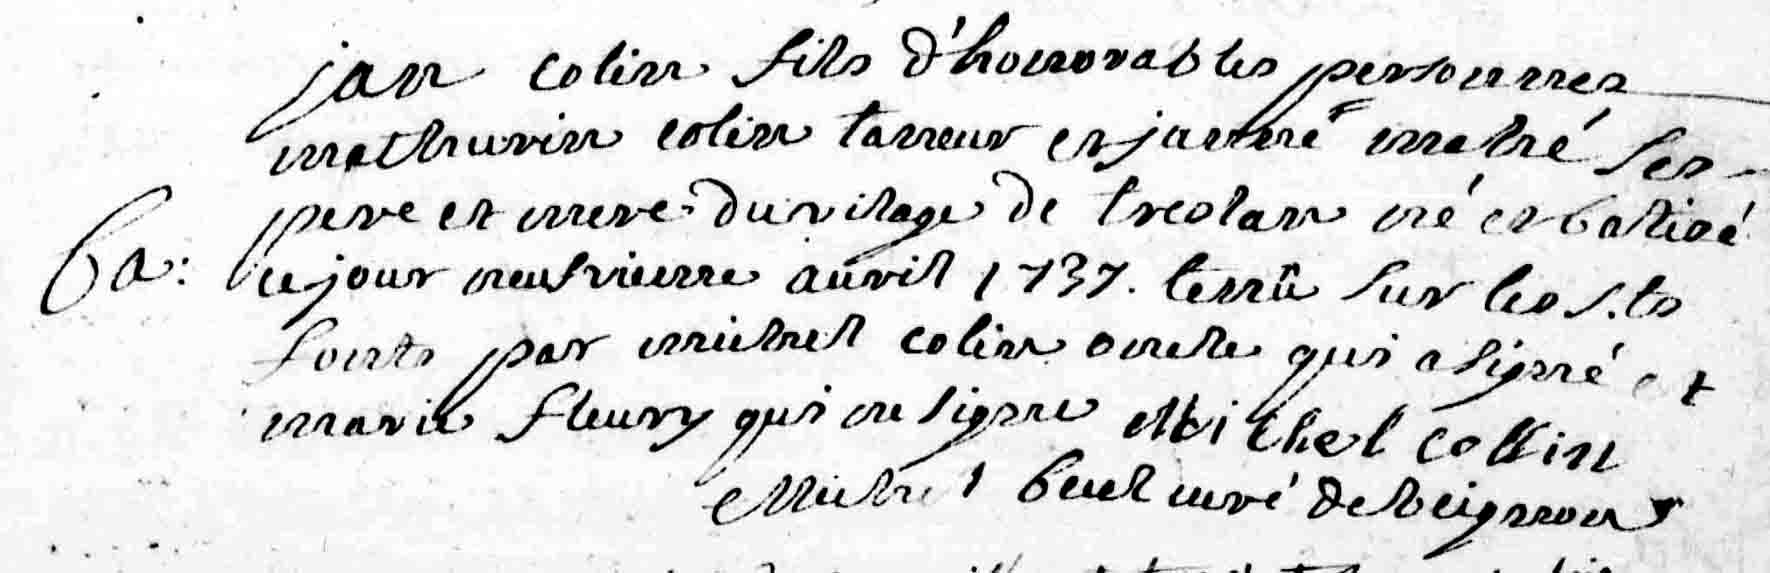 jan colin fils d'honorables personnes
mathurin colin tanneur et janne mahé ses
pere et mere du vilage de treolan né et batisé
ba: ce jour neufvieme auvril 1737. tennû sur les s.ts
fonts par michel colin oncle qui a signé et
marie fleury qui ne signe Michel Collin
Michel curé de beignon